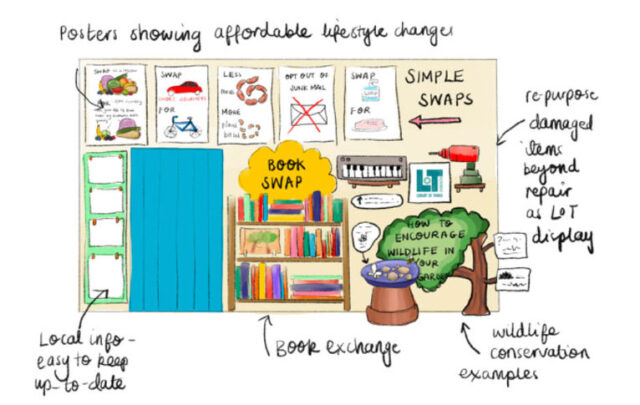 Posters showing affordable lifestyle changes
SWAP
FOR
LESS
MORE
OPT OUT OF
JUNK MAIL
SWAP
FOR
SIMPLE
SWAPS
re-purpose
damaged
items
beyond
repair
as LoT
display
BOOK
SWAP
LoT
HOW TO
ENCOURAGE
WILDLIFE IN
YOUR
GARDEN
Local info-
easy to keep
up-to-date
Book exchange
wildlife
conservation
examples